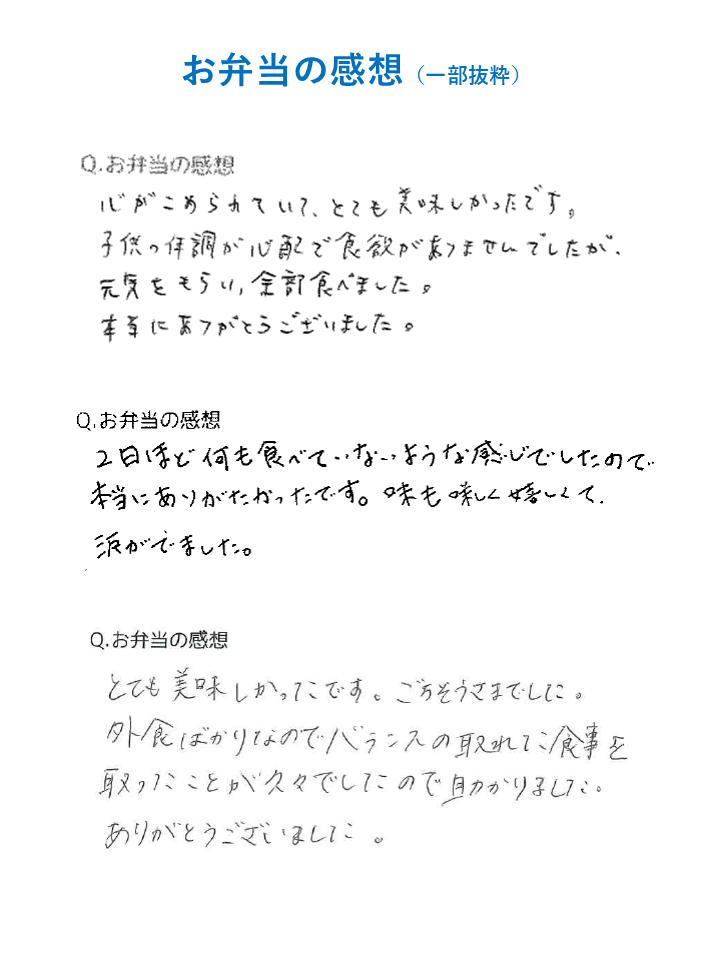 お弁当の感想（一部抜粋）
Q.お弁当の感想
心がこめられていて、とても美味しかったです。
子供の体調が心配で食欲がありませんでしたが、
元気をもらい、全部食べました。
本当にありがとうございました。
Q.お弁当の感想
2日ほど何も食べていないような感じでしたので
本当にありがたかったです。味も味しく嬉しくて、
涙がでました。
Q.お弁当の感想
とても美味しかったです。ごちそうさまでした。
外食ばかりなのでバランスの取れた食事を
取ったことが久々でしたので助かりました。
ありがとうございました。